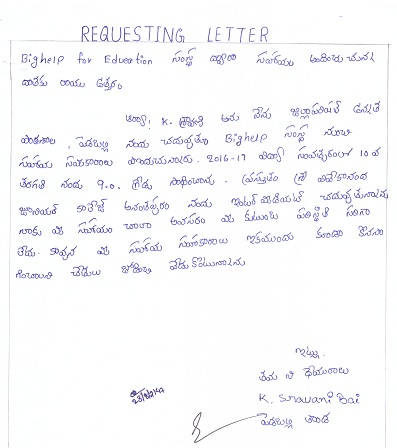 REQUESTING LETTER
Bighelp for Education సంస్థ ద్వారా సహాయం అందించుచున్న
దాతకు రాయు ఉత్తరం
ఆర్యా! K. శ్రావణి అను నేను జిల్లాపరిషత్ ఉన్నత
పాఠశాల, పెదబల్లి నందు చదువుతూ Bighelp సంస్థ నుండి
సహాయ సహకారాలు పొందుచున్నాను. 2016-17 విద్యా సంవత్సరంలో 10 వ
తరగతి నందు 9.0. గ్రేడు సాధించాను. ప్రస్తుతం శ్రీ వివేకానంద
జూనియర్ కాలేజ్ అనంతవరం నందు ఇంటర్మీడియట్ చదువుతున్నాను
నాకు మీ సహాయం చాలా అవసరం మా కుటుంబ పరిస్థితి సరిగా
లేదు. కావున మీ సహాయ సహకారాలు ఇకముందు కూడా కొనసా
గించాలని చేతులు జోడించి వేడుకొంటున్నాను
ఇట్లు,
తమ విధేయురాలు
K. Sravani Bai
పెదబల్లి తాండ